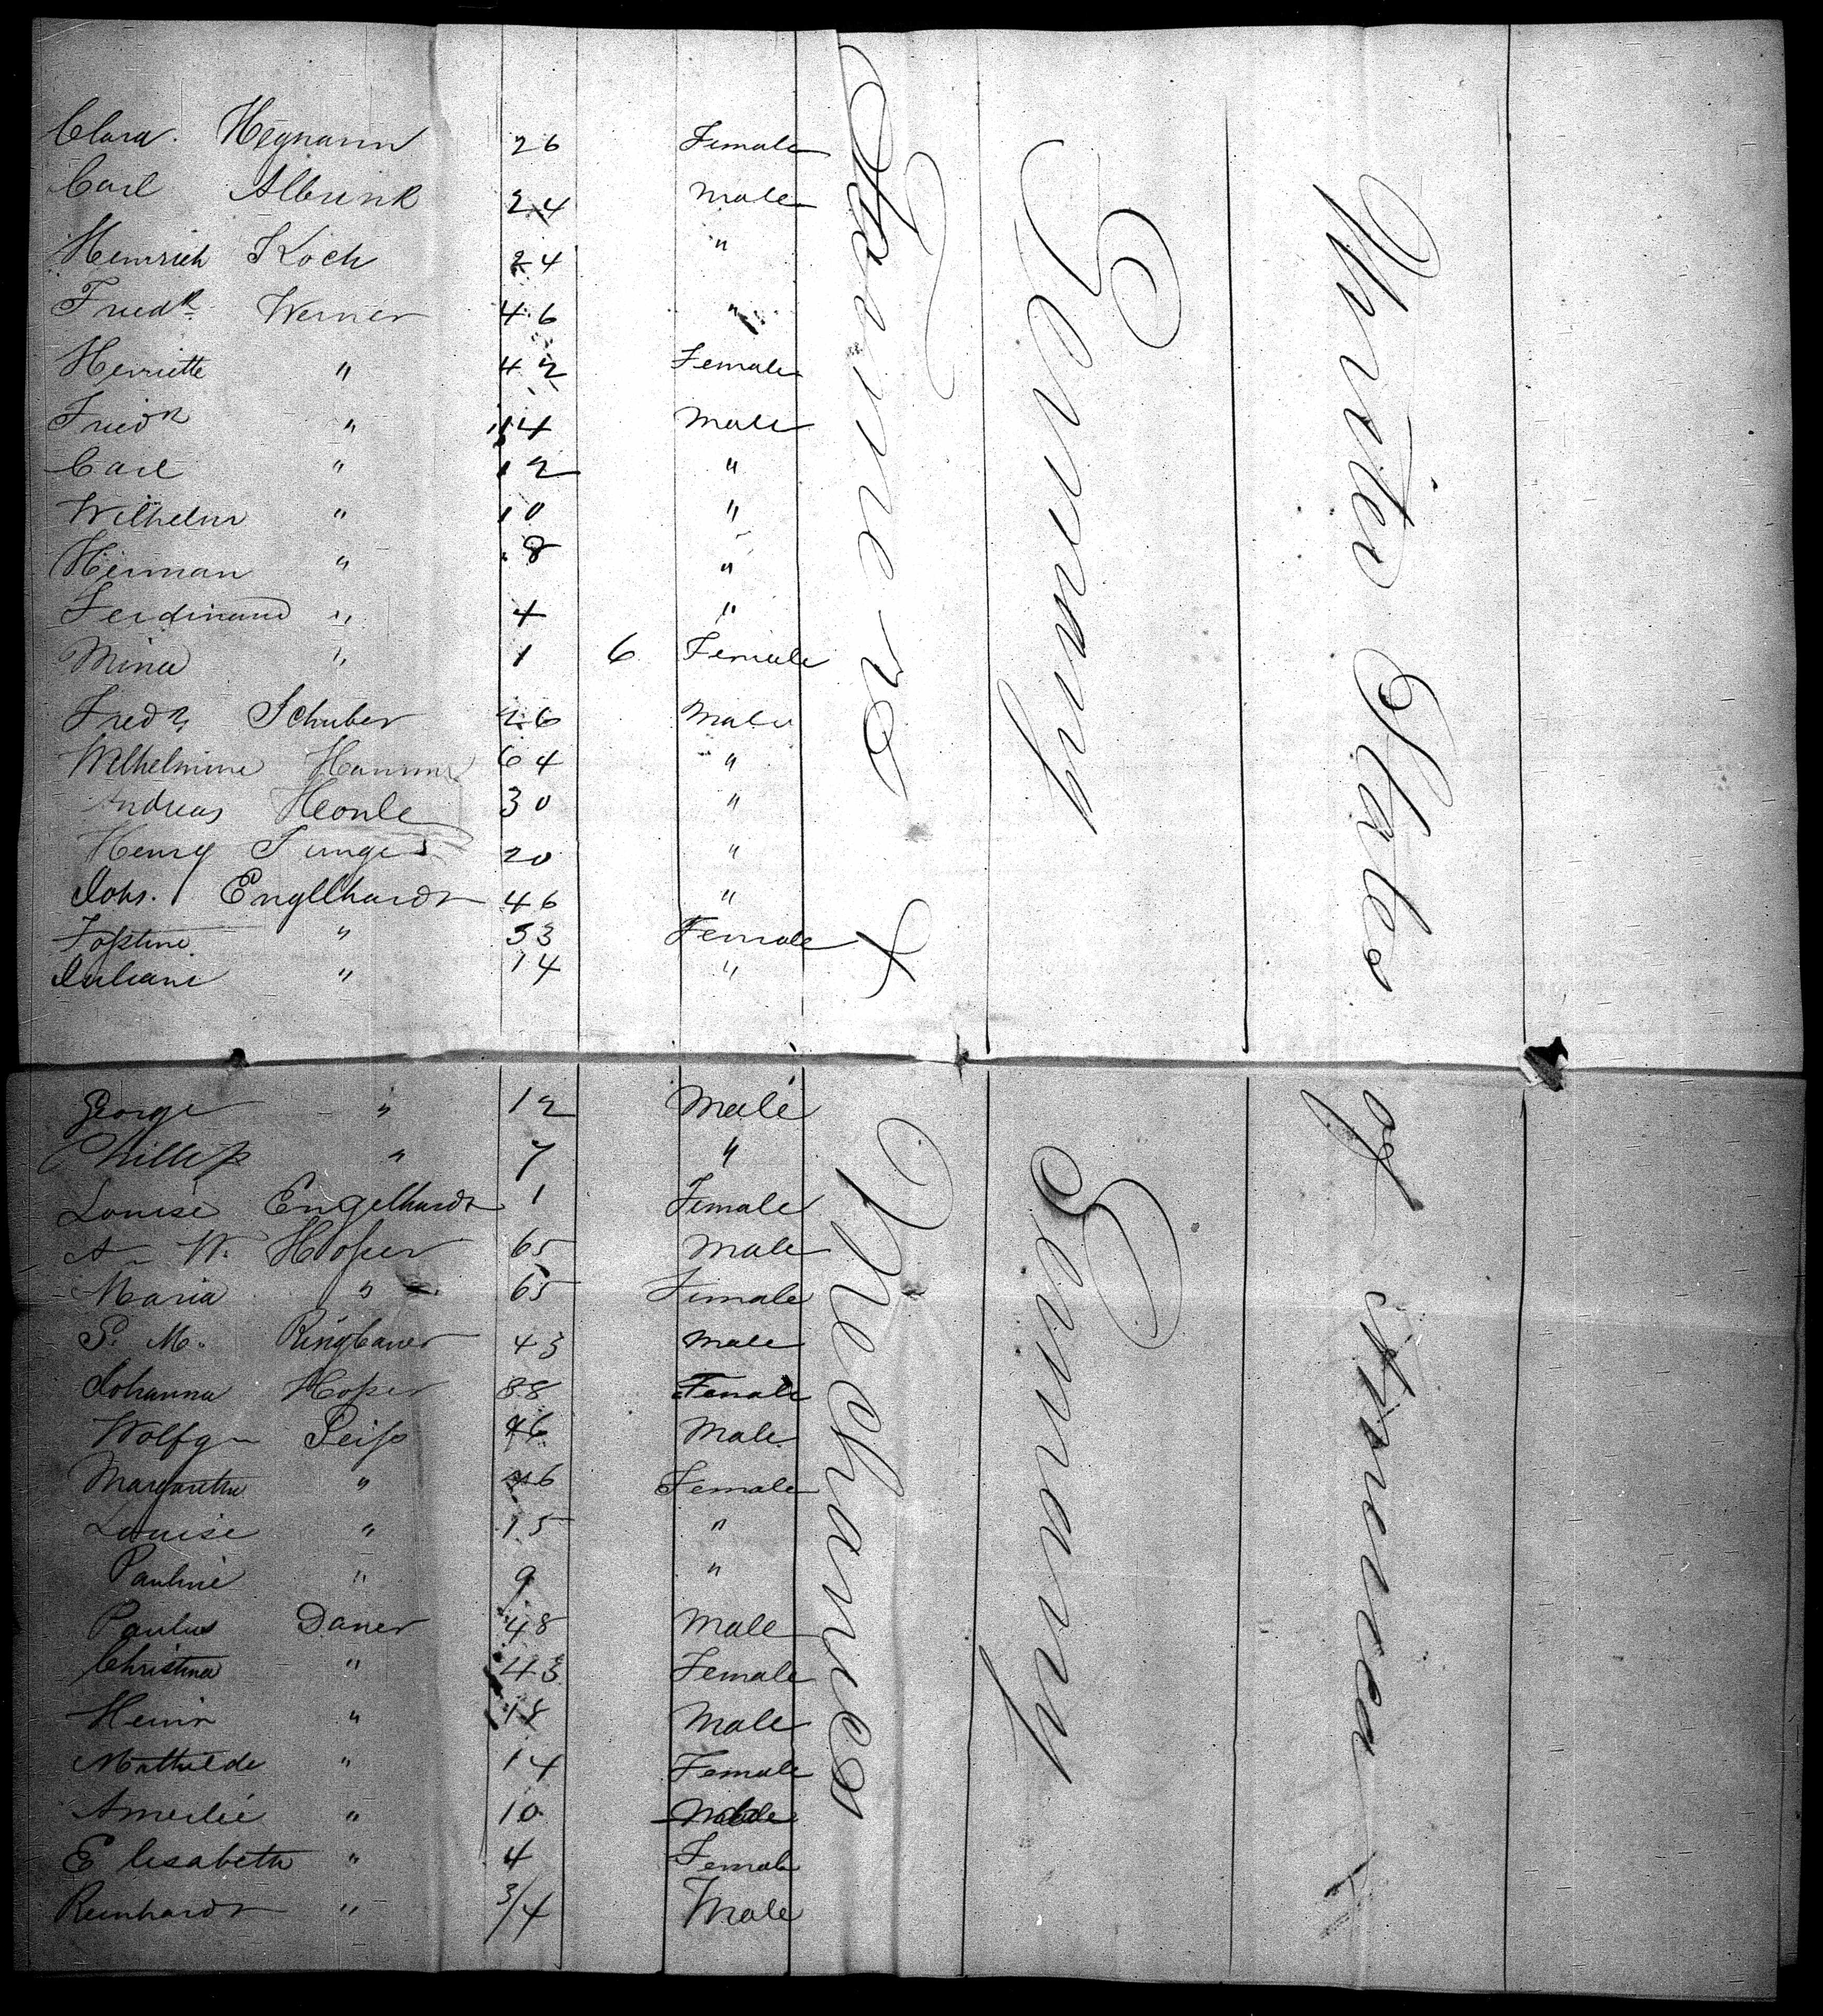 Clara. Hegmann 26 Female
Carl Albrink 24 Male
Heinrich Koch 24 "
Friedr. Werner 46 "
Henriette " 42 Female
Friedr " 14 Male
Carl " 12 "
Wilhelm " 10 "
Herman " 8 "
Ferdinand " 4 "
Mina " 1 6 Female
Fredr Schuber 26 Male
Wilhelmine 64 "
Andreas Heonle 30 "
Henry Junges 20 "
Johs. Engellhardt 46 "
" 53 Female
Juliane " 14 "
George " 12 Male
Phillip " 7 "
Louise Engelhardt 1 Female
A. W. Hoper 65 Male
Maria " 65 Female
P. M. Ringbauer 43 Male
Johanna Hoper 88 Female
Wolfgn 46 Male
Margaretha " 46 Female
Louise " 15 "
Pauline " 9 "
Paulus Daner 48 Male
Christina " 43 Female
Heinr " 18 Male
Mathilde " 14 Female
Amerlie " 10 Male
Elisabeth " 4 Female
Reinhardt " 3/4 Male
Farmers & Mechanics
Germany
Germany
United States of America